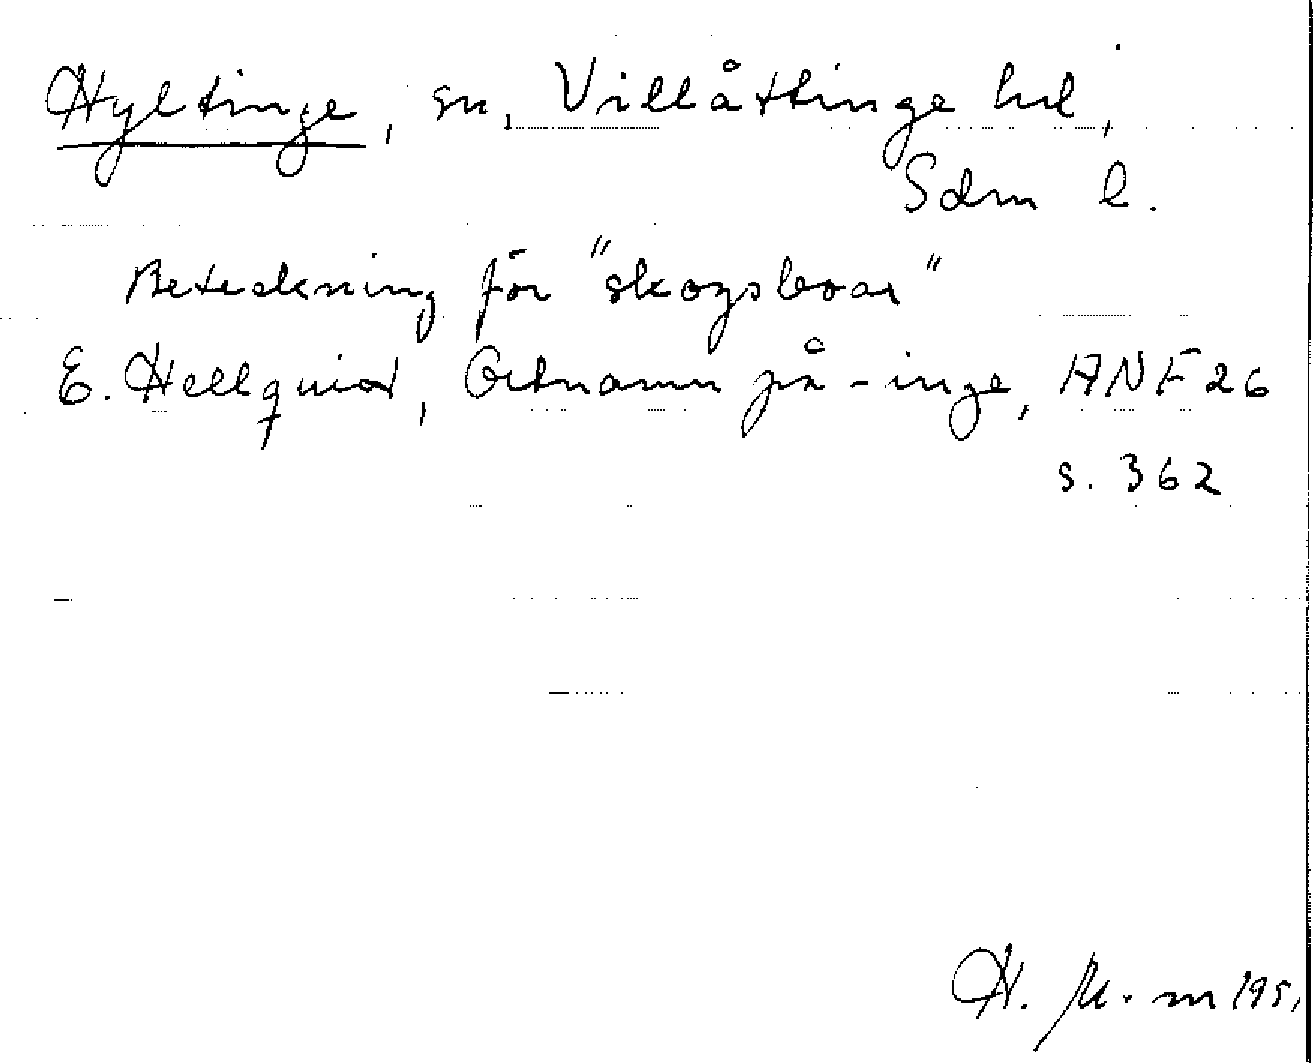 Hyltinge, sn, Villåttinge hd,
Sdm l.
Beteckning för "skogsboar"
E. Hellquist, Ortnamn på -inge, ANF 26
s. 362
H. M-m 1951